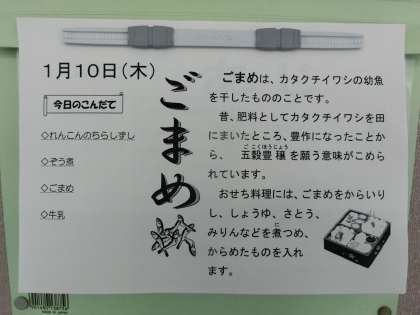 1月10日(木)
今日のこんだて
◇れんこんのちらしずし
◇ぞう煮
◇ごまめ
◇牛乳
ごまめ
ごまめは、カタクチイワシの幼魚
を干したもののことです。
昔、肥料としてカタクチイワシを田
にまいたところ、豊作になったことか
ら、五穀豊穣を願う意味がこめら
ごこくほうじょう
れています。
おせち料理には、ごまめをからいり
し、しょうゆ、さとう、
みりんなどを煮つめ、
からめたものを入れ
ます。